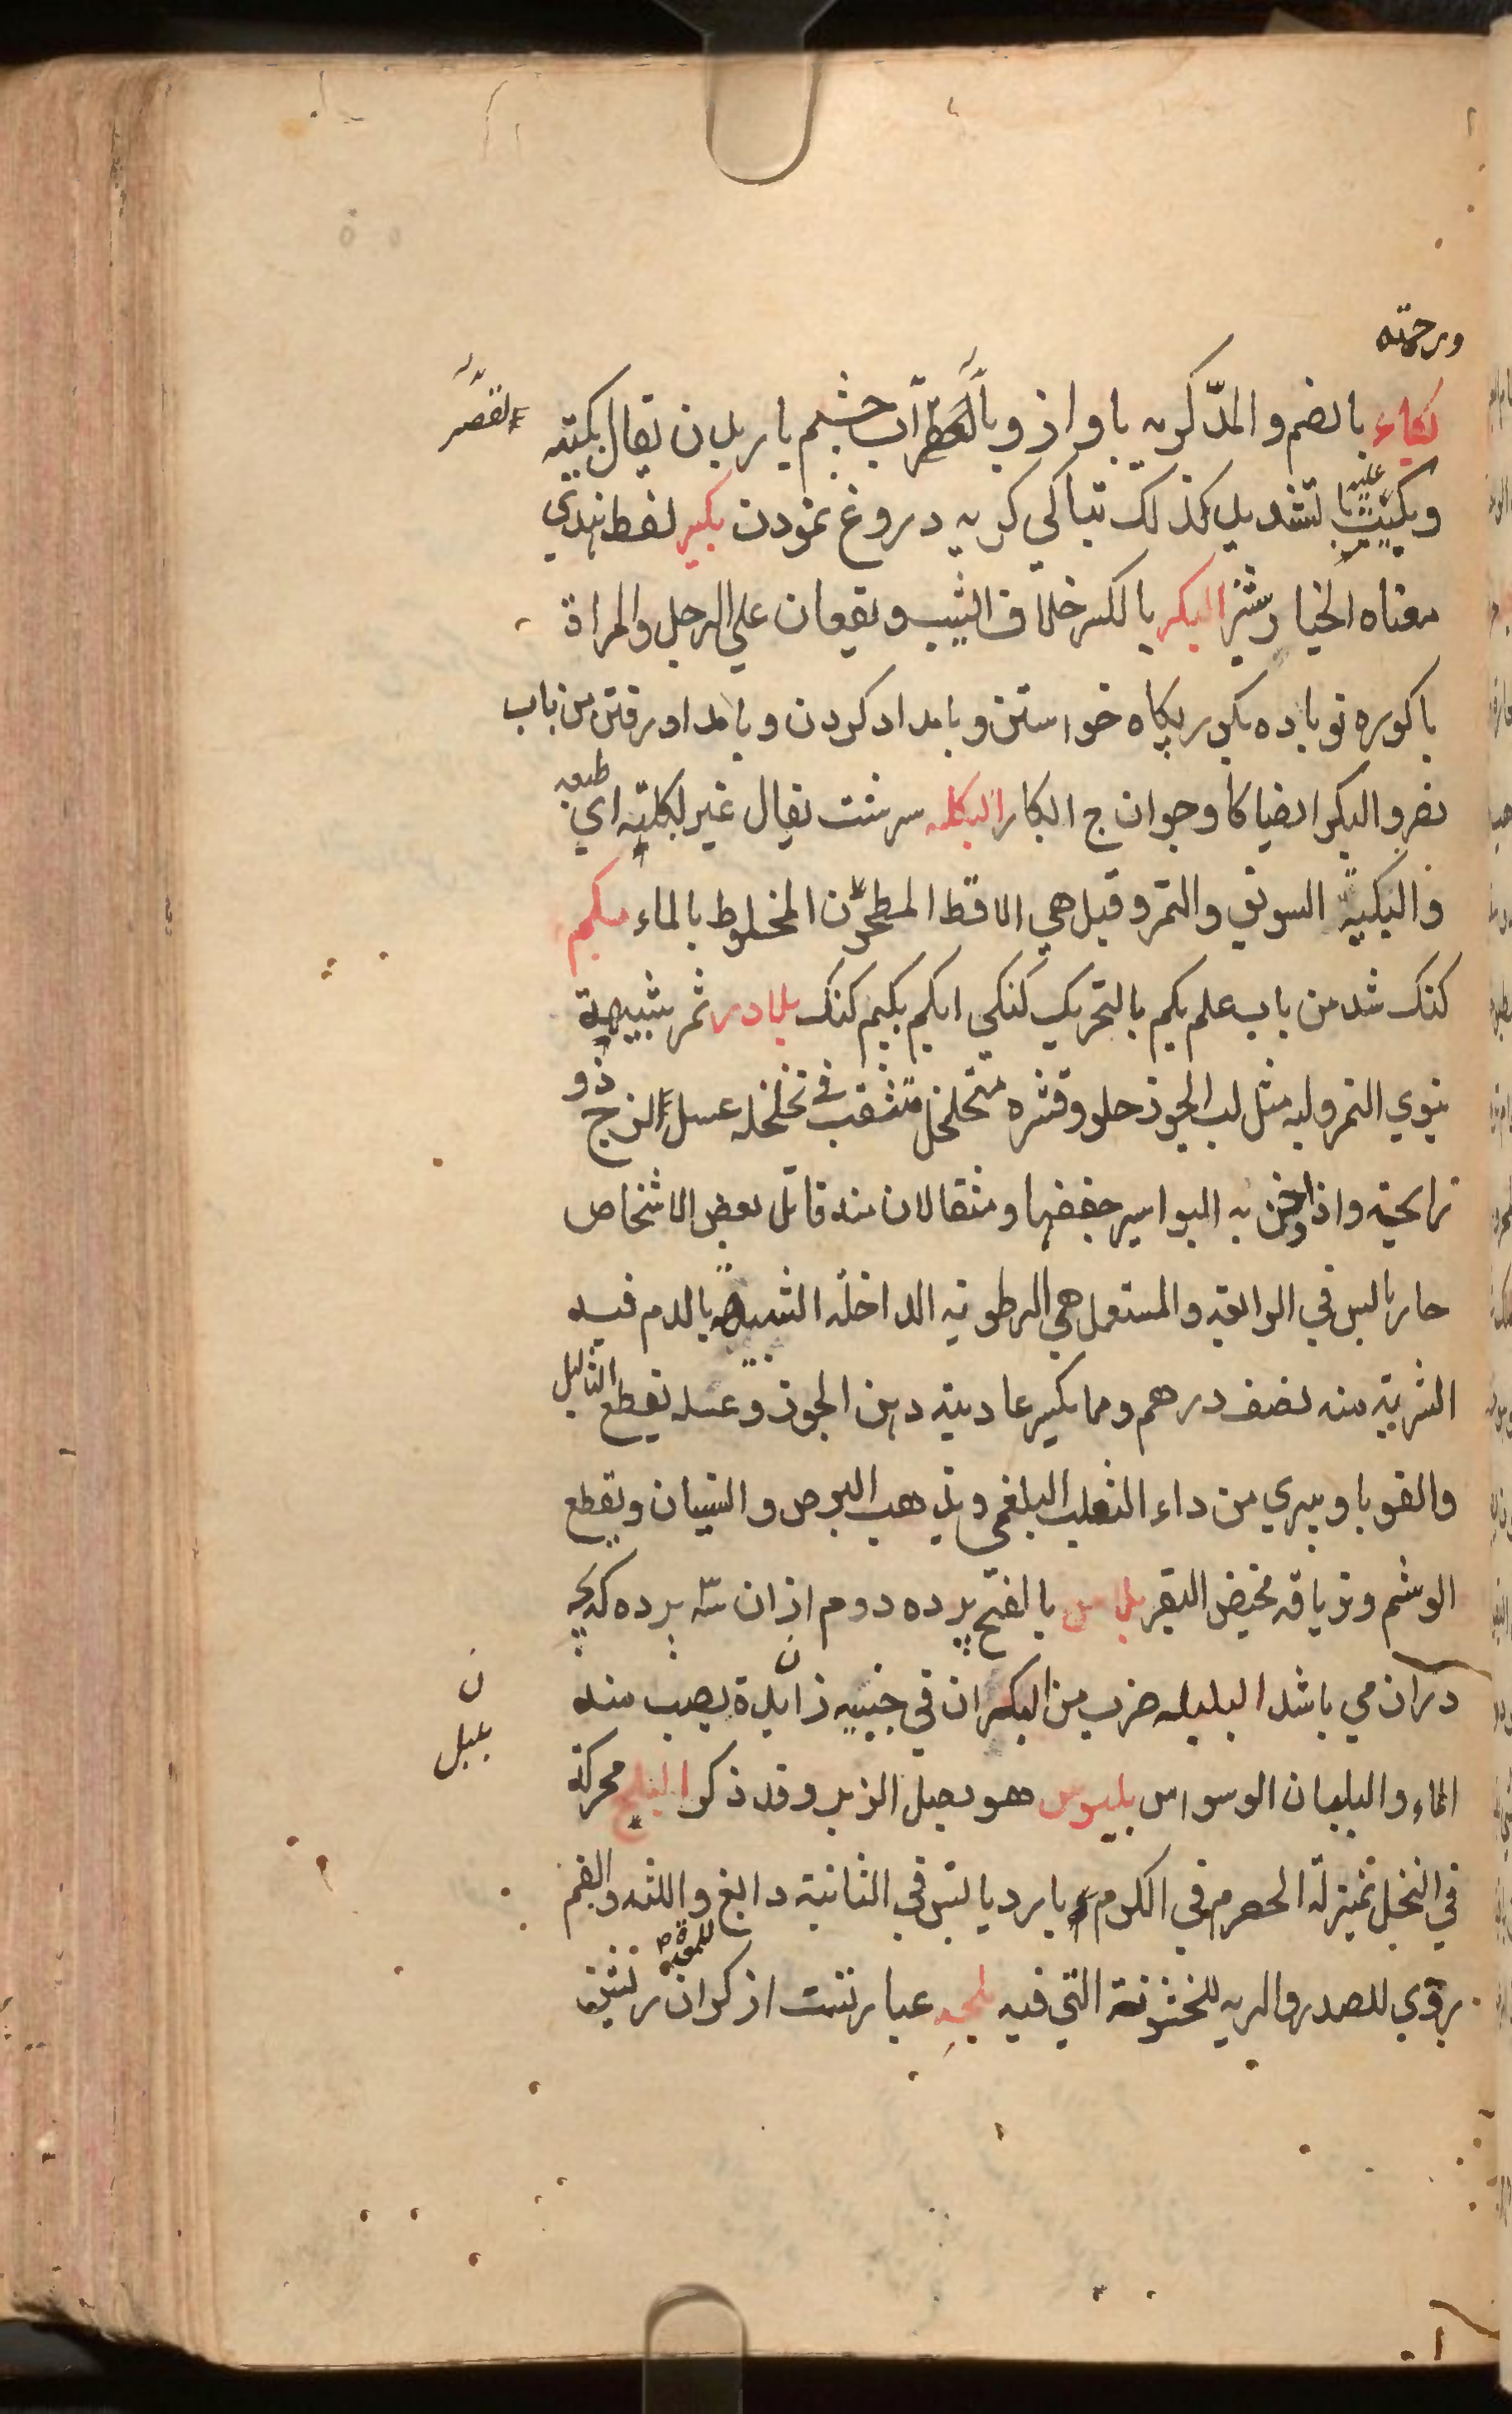 ورحمته
بكاء بالضم والمدّ كريه باواز وبالقصر آب چشم باريدن يقال بكيته
وبكيت عليه بالتشديد كذلك تباكي كريه دروغ نمودن بكير لفظ هندي
معناه الخيارشنبر البكر بالكسر خلاف الثيب ويقعان علي الرجل والمراة
باكوره نوباده بكور پكاه خواستن وبامداد كردن وبامداد رفتن من باب
نصر والبكر ايضا كاو جوان ج ابكار البكله سرشت يقال غير بكلته اي طبعه
والبكيلة السويق والتمر وقيل هي الاقط المطحون المخلوط بالماء بكم
كنك شد من باب علم بكم بالتحريك كنكي ابكم بكيم كنك بلادر ثمر شبيهة
بنوي التمر ولبه مثل لب الجوز حلو وقشره متخلخل متثقب في تخلخله عسل لزج ذو
رايحة واذا دخن به البواسير جففها ومثقالان منه قاتل بعض الاشخاص
حار يابس في الرابعة والمستعمل هي الرطوبة الداخلة الشبيهة بالدم فيه
الشربة منه نصف درهم ومما يكسر عاديته دهن الجوز وعسله يقطع الثاليل
والقوبا ويبري من داء الثعلب البلغمي ويذهب البرص والنسيان ويقطع
الوشم وترياقه مخيض البقر بلاس بالفتح پرده دوم ازان سه پرده كه بچه
دران مي باشد البلبله ضرب من الكيزان في جنبيه زايدة يصب منه
الماء والبلبال الوسواس بلبوس هو بصل الزير وقد ذكر البلح محركة
في النخل بمنزلة الحصرم في الكرم بارد يابس في الثانية دابغ واللثه والفم
للمعدة
روي للصدر والريه للخشونة التي فيه بلجه عبارتست از كران
القصر
ن
بلبل